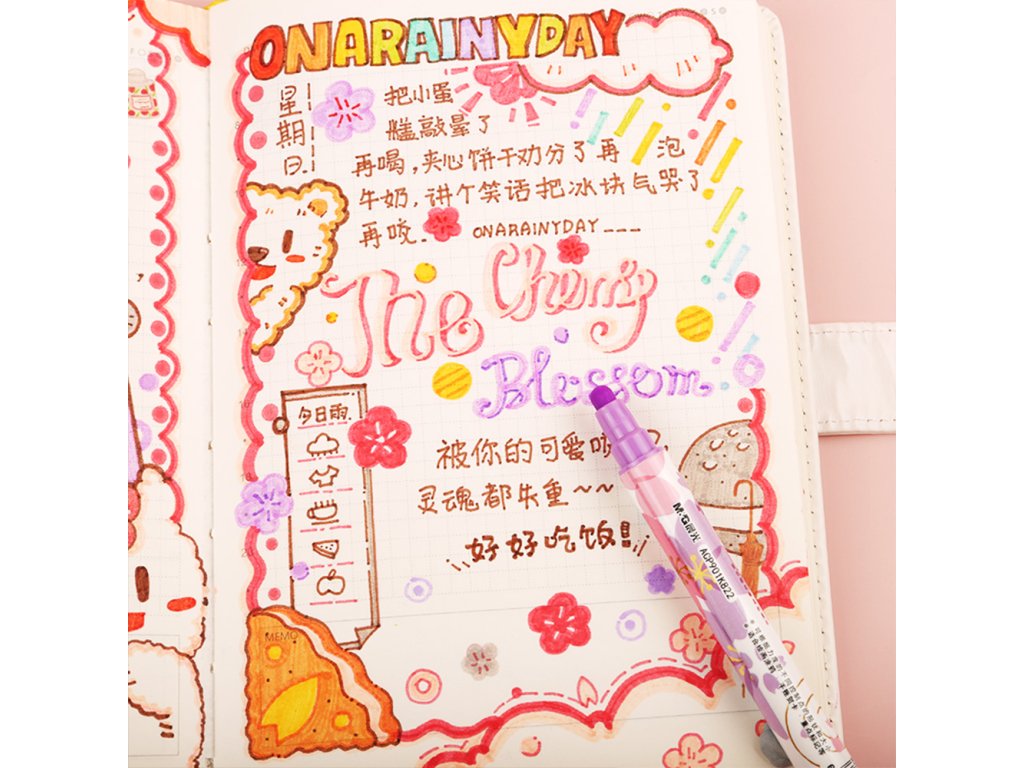 ONARAINYDAY
星期日
把小蛋
糕敲晕了
再喝,夹心饼干劝分了再 泡
牛奶,讲个笑话把冰块气哭了
再咬.
ONARAINYDAY___
The Cherry
Blessom
今日雨.
被你的可爱
灵魂都失重~~
好好吃饭!!
MEMO
M&G晨光 AGP901KB22